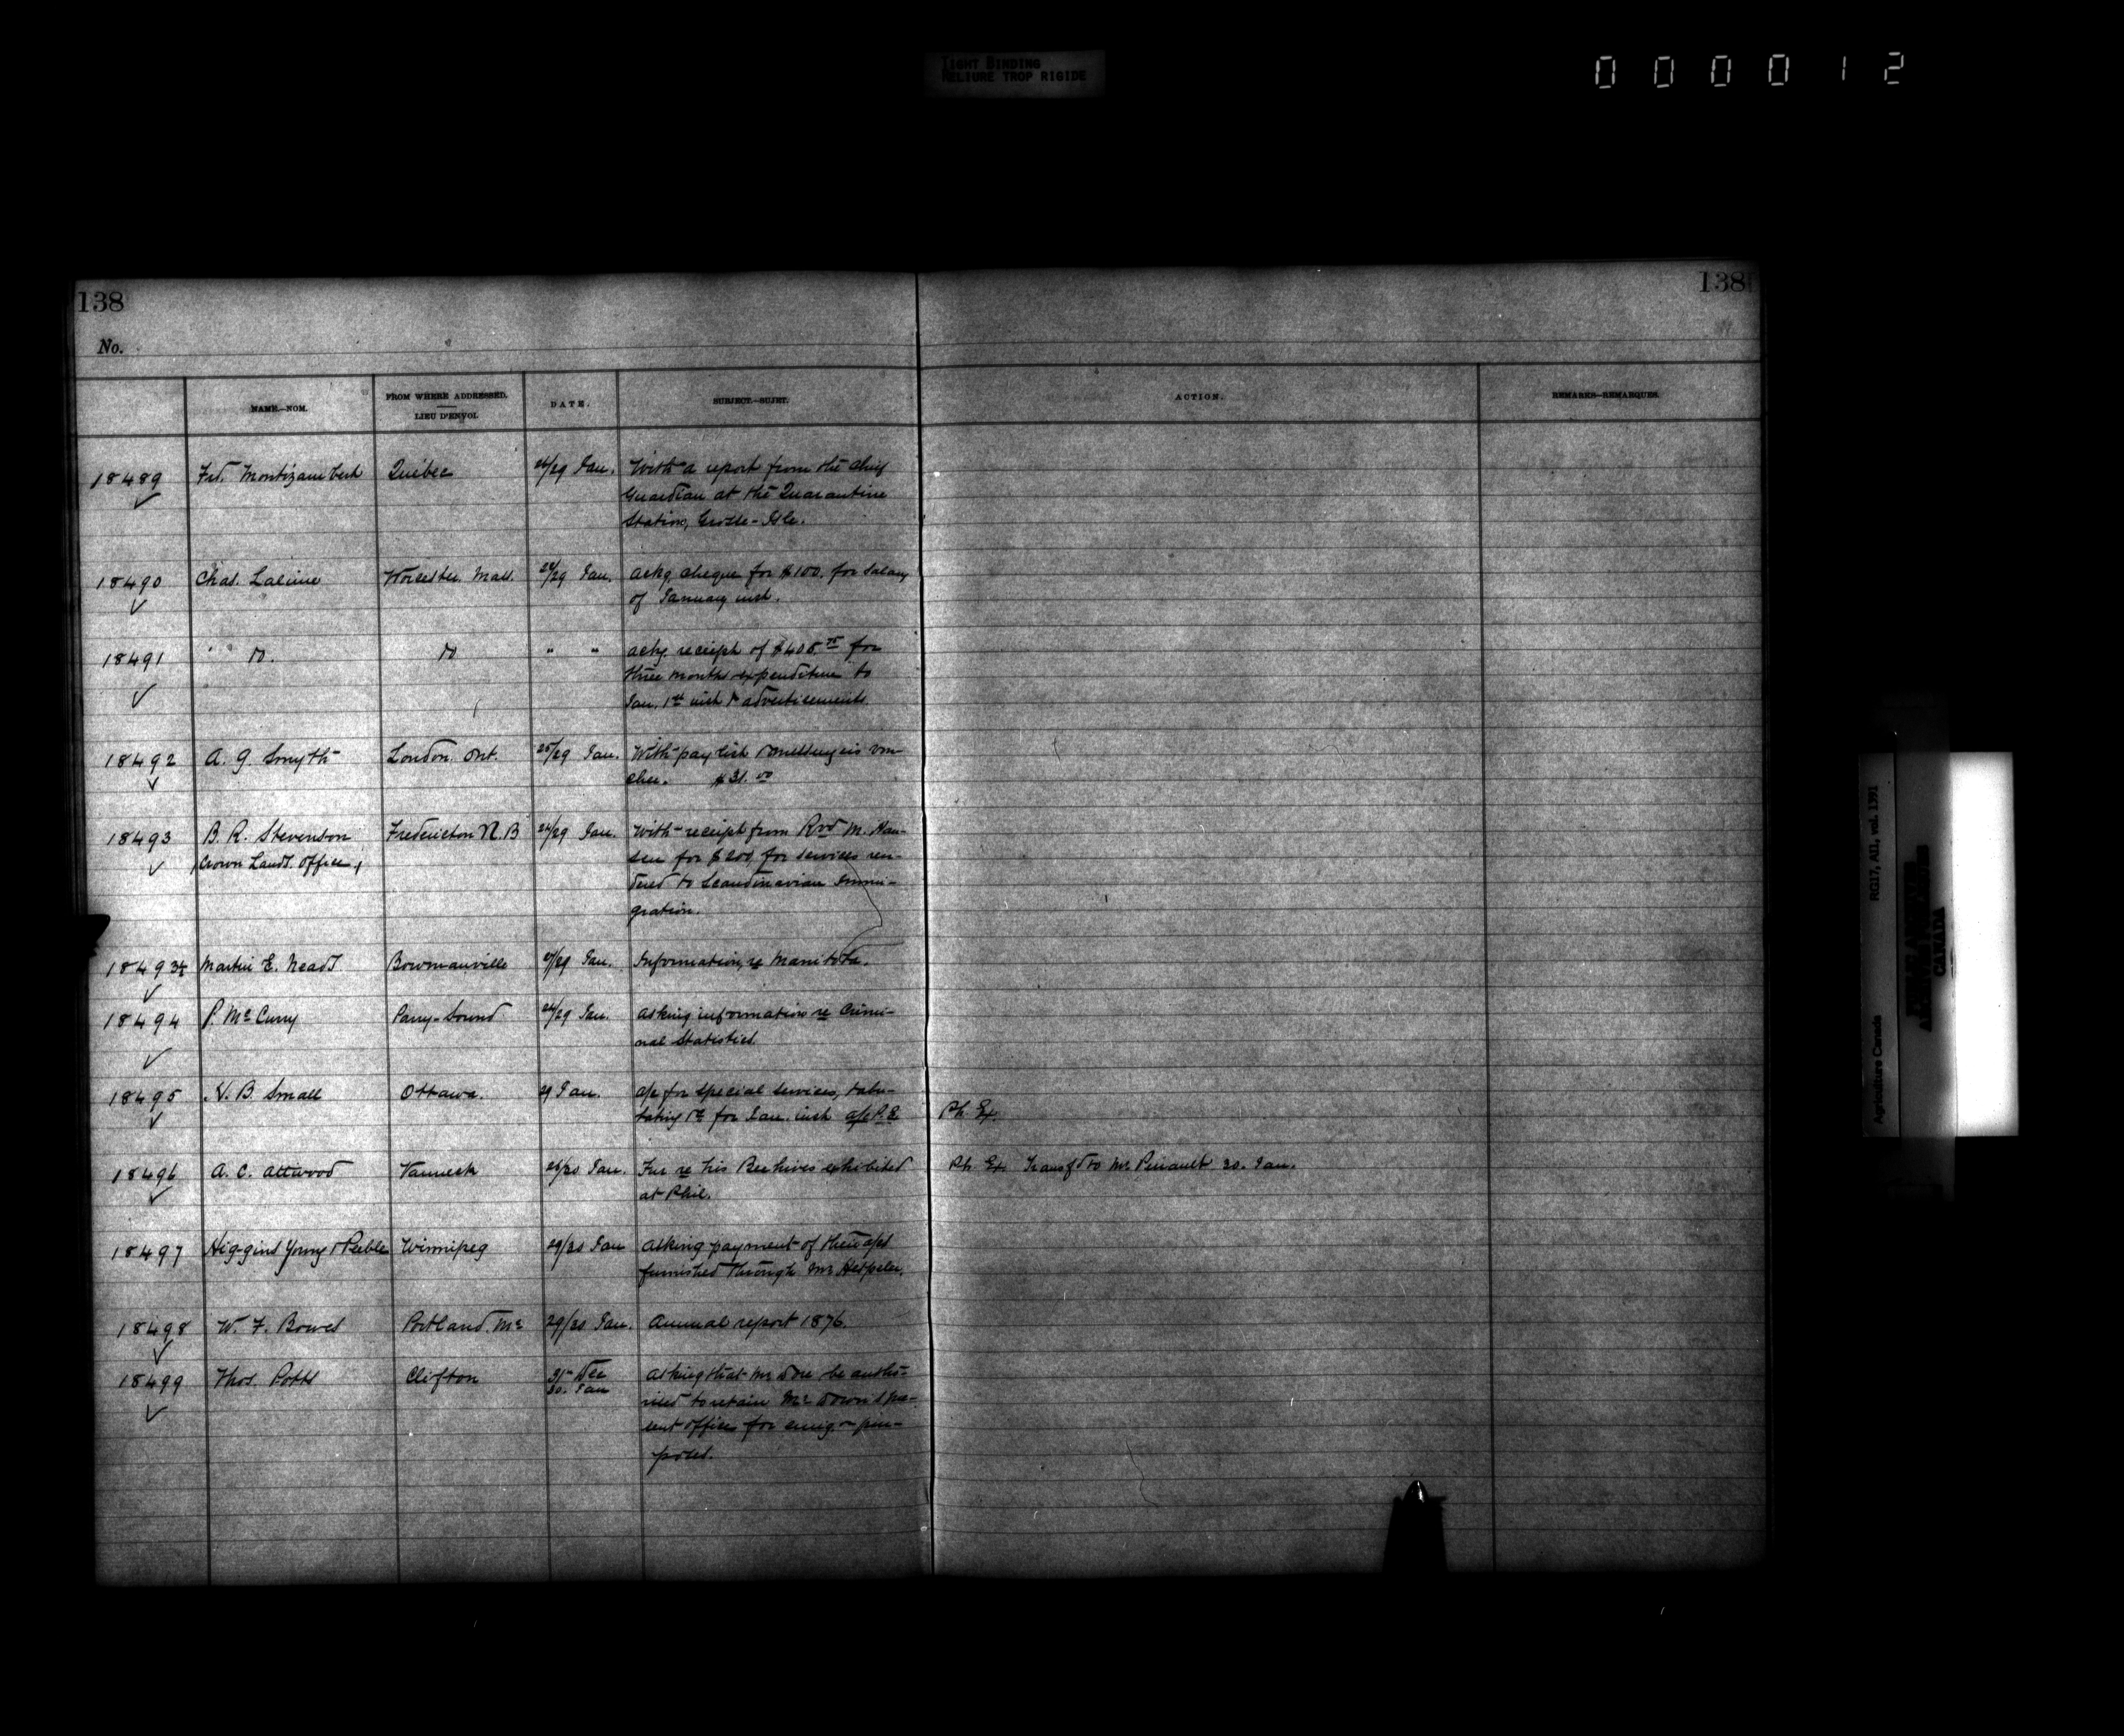 TIGHT BINDING
RELIURE TROP RIGIDE
000012
138
138
No.
NAME.—NOM.
FROM WHERE ADDRESSED.
LIEU D'ENVOI.
DATE.
SUBJECT.—SUJET.
ACTION.
REMARKS—REMARQUES.
18489 Frd. Montizambert Québec 26/29 Jan. With a report from the Chief
Guardian at the Quarantine
Station, Grosse-Isle.
18490 Chas. Lalime Worcester Mass. 28/29 Jan. ackg cheque for $100. for salary
of January inst.
18491 " Do. Do " " ackg receipt of $405.75 for
three months expenditure to
Jan. 1st inst & advertisements
18492 A. G. Smyth London. Ont. 25/29 Jan. With pay list & messengers vou-
cher. $31.00
18493 B. R. Stevenson Fredericton N.B 24/29 Jan. With receipt from Rvd M. Han-
(Crown Lands. Office,) sen for $200, for services ren-
dered to Scandinavian Immi-
gration.
18493½ Martin E. Neads Bowmanville /29 Jan. Information, re Manitoba.
18494 P. McCurry Parry-Sound 24/29 Jan. asking information re Crimi-
nal Statistics.
18495 H. B. Small Ottawa. 29 Jan. a/c for special services, tabu-
lating &c for Jan. inst a/c P. E. Ph Ex.
18496 A. C. Attwood Vanneck 26/30 Jan. Fur re his Bee hives exhibited Ph Ex. Transfd to Mr Perrault 30. Jan.
at Phil.
18497 Higgins Young & Peebles Winnipeg 29/30 Jan asking payment of their a/cs
furnished through Mr Hespeler.
18498 W. F. Bowes Portland. Me 29/30 Jan. Annual report 1876.
18499 Thos. Potts Clifton 31 Dec asking that Mr Dore be autho-
30. Jan rized to retain Mr Downs pre-
sent office for emign pur-
poses.
RG17, AII, vol. 1391
Agriculture Canada
CANADA